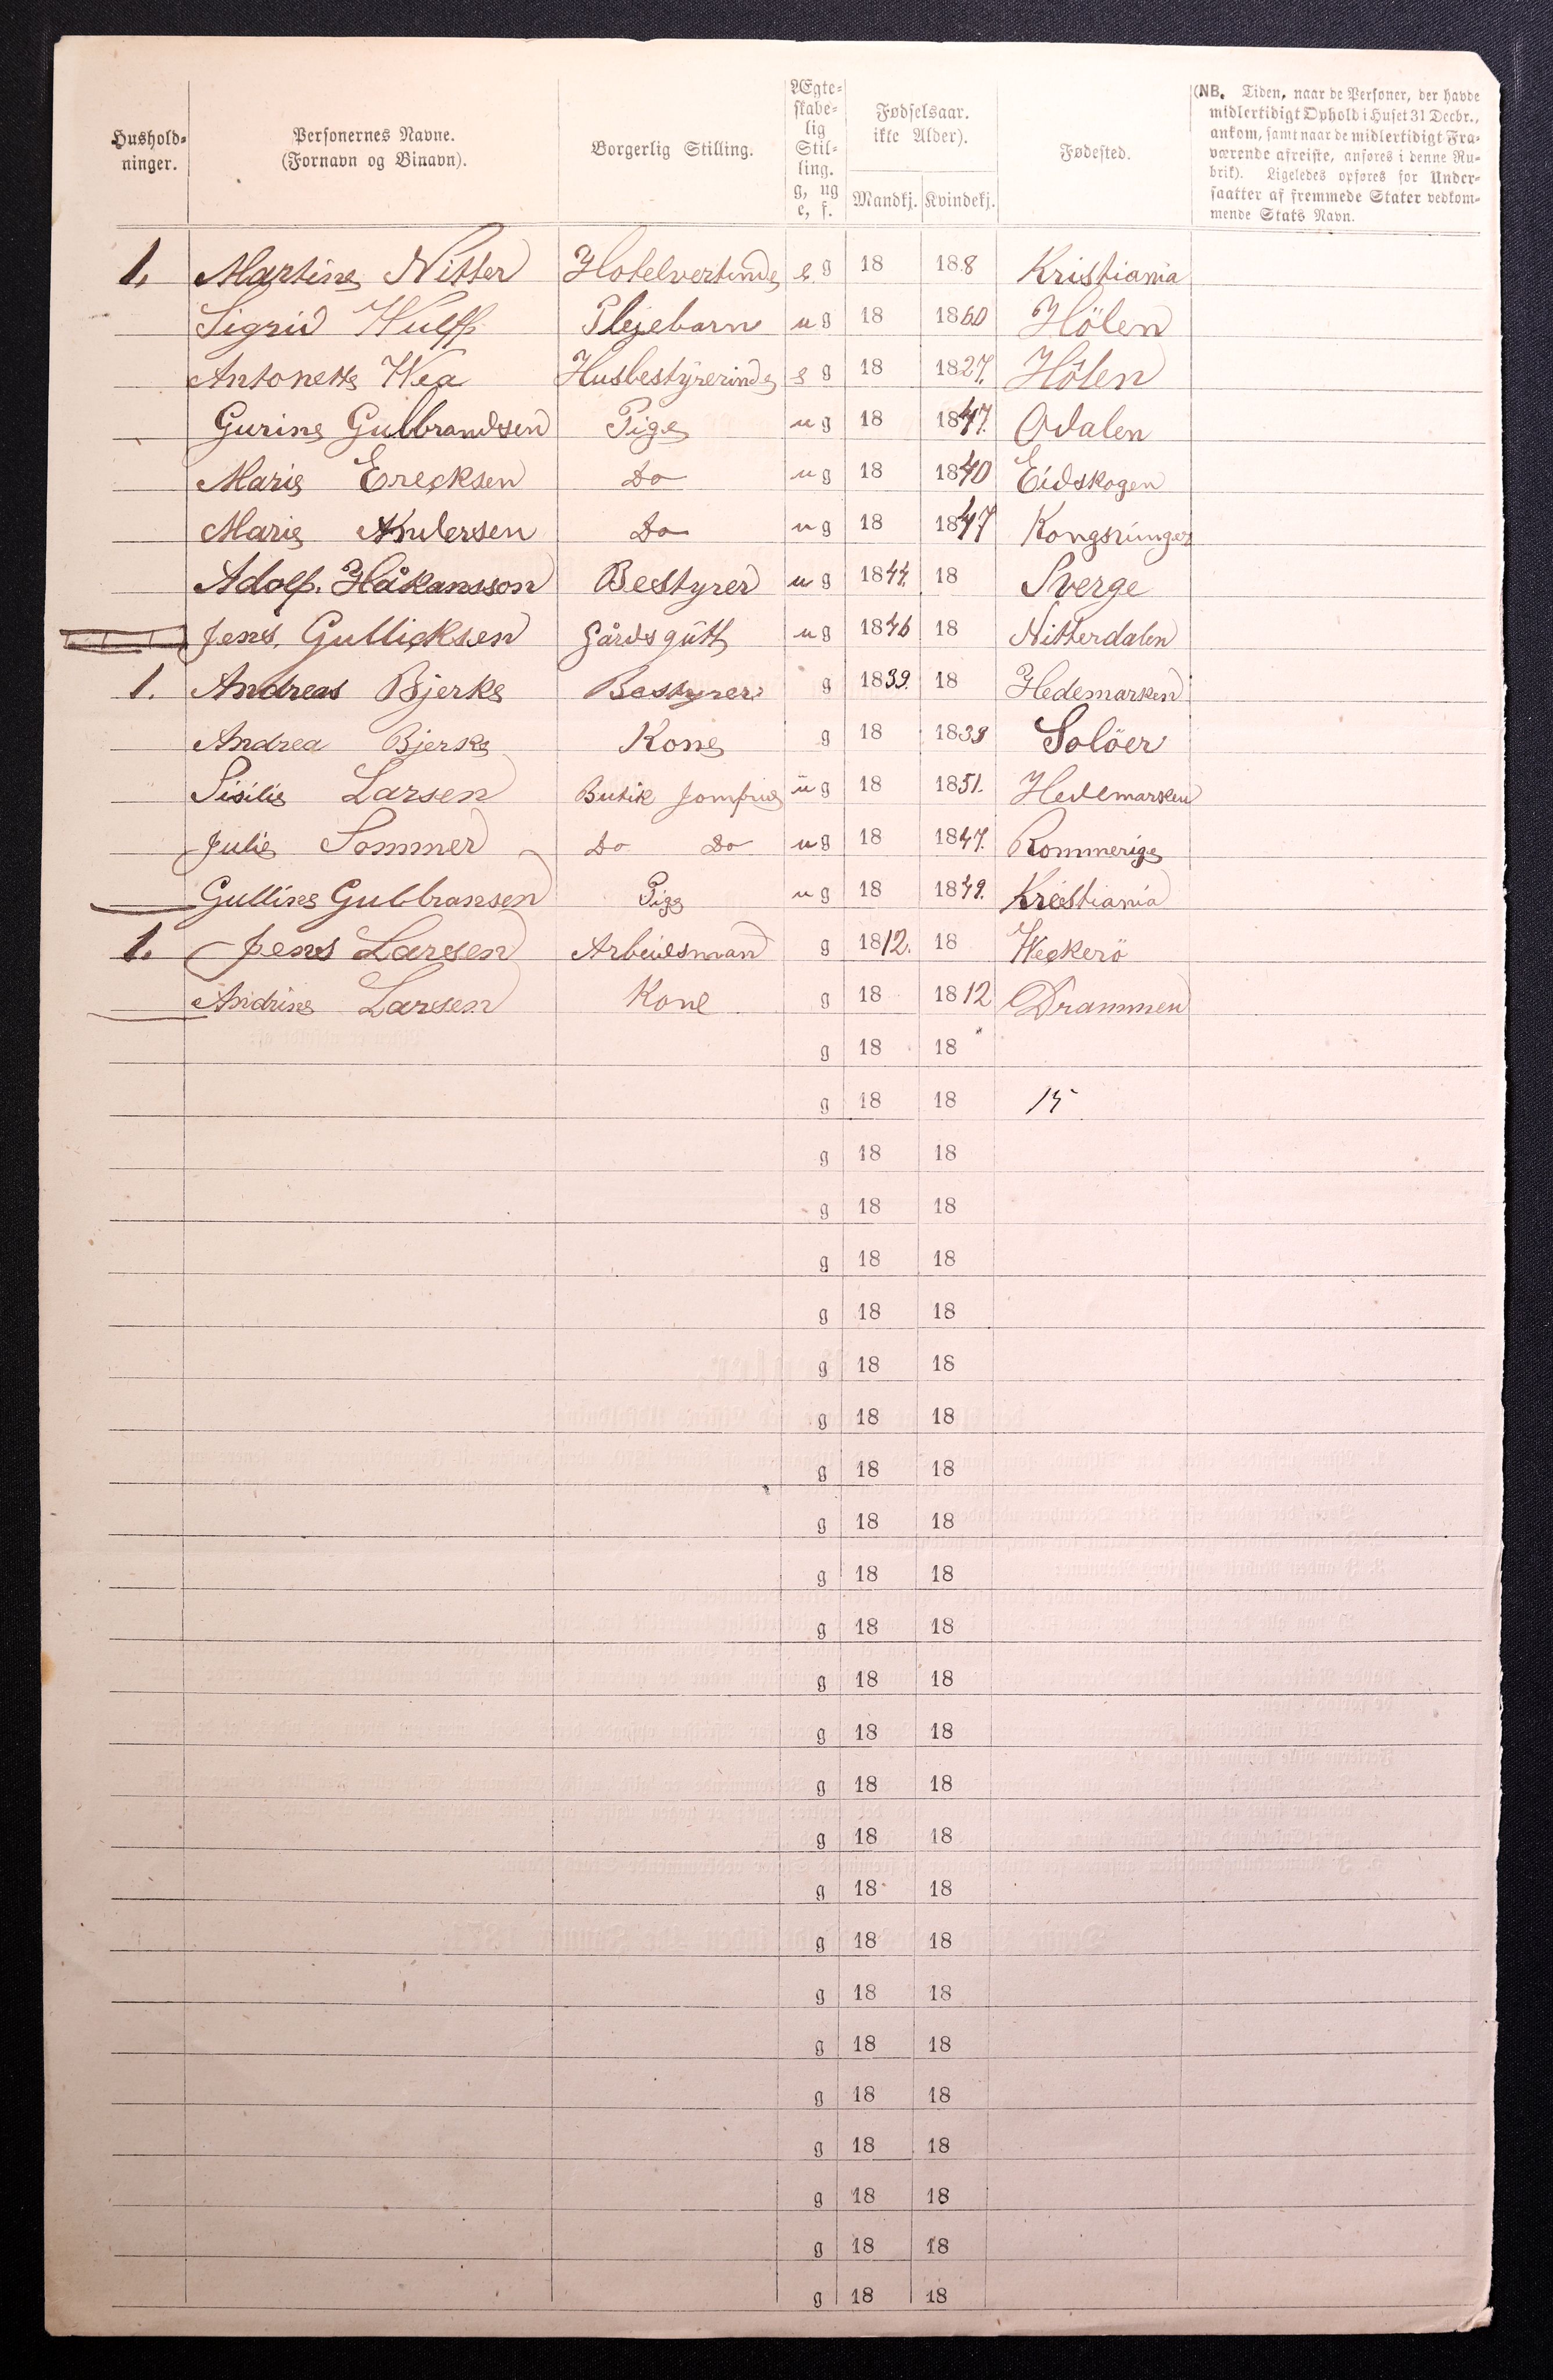 Hushold-
ninger.
Personernes Navne.
(Fornavn og Binavn).
Borgerlig Stilling.
Ægte-
skabe-
lig
Stil-
ling.
g, ug
e, f.
Fødselsaar.
(ikke Alder).
Mandkj. Kvindekj.
Fødested.
(NB. Tiden, naar de Personer, der havde
midlertidigt Ophold i Huset 31 Decbr.,
ankom, samt naar de midlertidigt Fra-
værende afreiste, anføres i denne Ru-
brik). Ligeledes opføres for Under-
saatter af fremmede Stater vedkom-
mende Stats Navn.
1. Martine Nitter Hotelvertinde e g 18 18.8 Kristiania
Sigrid Wulff Plejebarn u g 18 1860 Hölen
Antonette Wea Husbestyrerinde e g 18 1827. Hölen
Gurine Gulbrandsen Pige u g 18 1847. Odalen
Marie Erecksen Do u g 18 1840 Eidskogen
Marie Andersen Do u g 18 1847 Kongsvinger
Adolf. Håkansson Bestyrer u g 1844. 18 Sverge
Jens. Gullicksen Gårdsgut u g 1846 18 Nitterdalen
1. Andreas Bjerke Bestyrer g 1839. 18 Hedemarken
Andrea Bjerke Kone g 18 1833 Solöer
Sisilie Larsen Butik Jomfrue u g 18 1851. Hedemarken
Julie Sommer Do Do u g 18 1847. Rommerige
Gulline Gulbransen Pige u g 18 1849. Kristiania
1. Jens Larsen Arbeidsmand g 1812. 18 Weckerö
Andrine Larsen Kone g 18 1812 Drammen
g 18 18
g 18 18 15
g 18 18
g 18 18
g 18 18
g 18 18
g 18 18
g 18 18
g 18 18
g 18 18
g 18 18
g 18 18
g 18 18
g 18 18
g 18 18
g 18 18
g 18 18
g 18 18
g 18 18
g 18 18
g 18 18
g 18 18
g 18 18
g 18 18
g 18 18